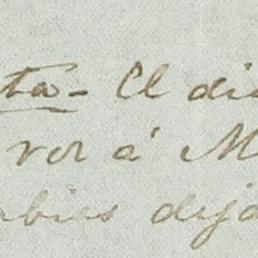 ta - El di
ver á M
abias dejo